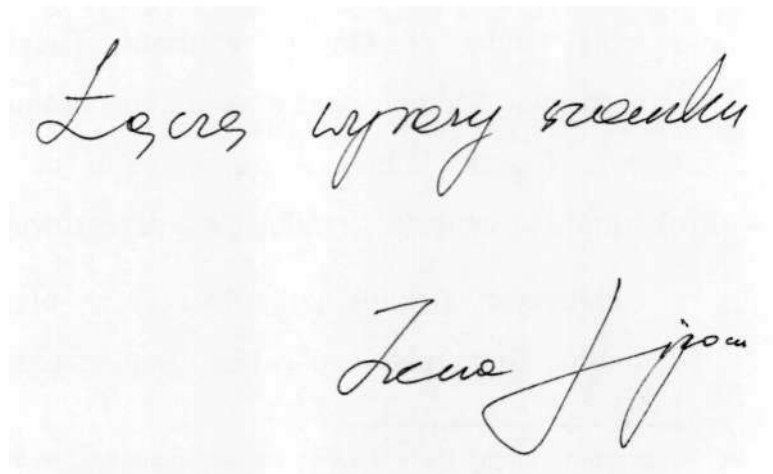 Łączę wyrazy szacunku
Irena